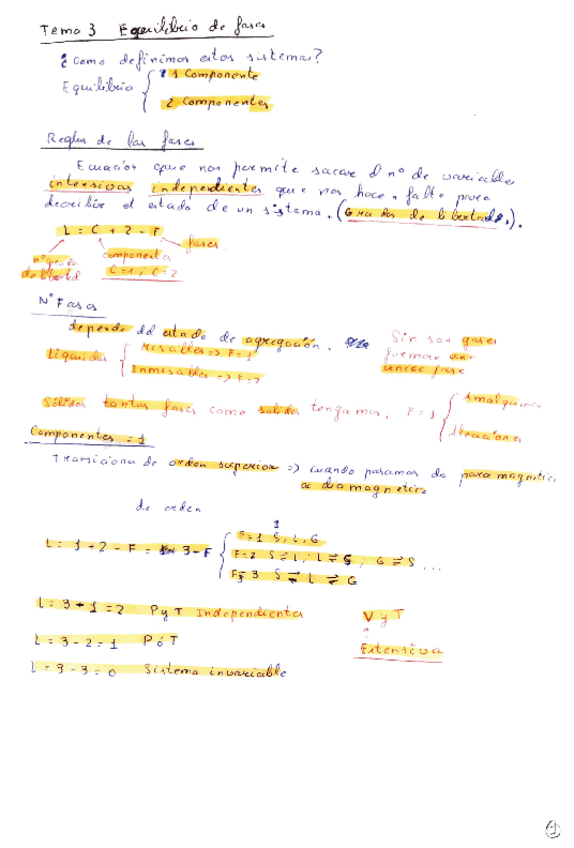 Tema 3 Equilibrio de fases
¿Como definimos estos sistemas?
Equilibrio { 1 Componente
2 Componentes
Reglas de las fases
Ecuación que nos permite sacar el nº de variables
intensivas independientes que nos hace falta para
describir el estado de un sistema. (Grados de libertad).
L = C + 2 - F
nº grado de libertad
componentes
C=1 ; C=2
fases
Nº Fases
depende del estado de agregación.
Sin son gases
forman una
única fase
Líquidos { Miscibles => F=1
Inmiscibles -> F=2
Sólidos tantas fases como solidos tengamos. F=1 { Amalgamas
Aleaciones
Componentes = 1
Transiciones de orden superior => cuando pasamos de paramagnético
a diamagnético
de orden
1
L = 1 + 2 - F = 3 - F { F=1 S, L, G
F=2 S⇌L, L⇌G, G⇌S ...
F=3 S⇌L⇌G
L = 3 + 1 = 2 P y T Independientes
V y T
↑
Extensiva
L = 3 - 2 = 1 P ó T
L = 3 - 3 = 0 Sistema invariable
1